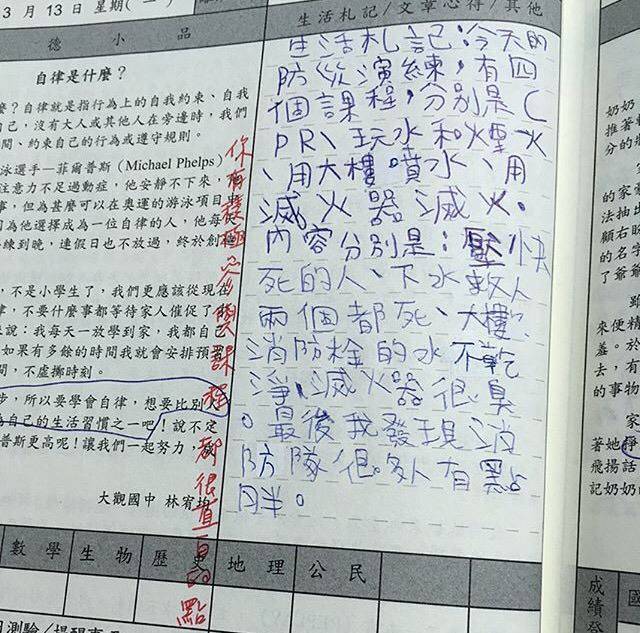 3 月 13 日 星期(一)
德 小 品
自律是什麼？
麼？自律就是指行為上的自我約束、自我
自己，沒有大人或其他人在旁邊時，我們
間、約束自己的行為或遵守規則。
泳選手—菲爾普斯(Michael Phelps)
注意力不足過動症，他安靜不下來，
事，但為甚麼可以在奧運的游泳項目
因為他選擇成為一位自律的人，他每
練到晚，連假日也不放過，終於創
，不是小學生了，我們更應該從現在
律，不要什麼事都等待家人催促了
來說：我每天一放學到家，我都自
如果有多餘的時間我就會安排預
間，不虛擲時刻。
步，所以要學會自律，想要比別
為自己的生活習慣之一吧！說不定
普斯更高呢！讓我們一起努力，
大觀國中 林宥
你有積極參與課程都很直白的點
生活札記/文章心得/其他
生活札記：今天的
防災演練，有四
個課程，分別是C
PR、玩水和煙火
、用大樓噴水、用
滅火器滅火。
內容分別是：壓快
死的人、下水救人
兩個都死、大樓
消防栓的水不乾
淨、滅火器很臭
。最後我發現消
防隊很多人有點
胖。
數學 生物 歷史 地理 公民
測驗/提醒事
奶奶
推著
分的
的家
法抽出
顧右盼
的名字
了爺爺
來便精
羞。於
去，有
的事物
家
著她淨
飛揚話
記奶奶
成
績
發
國